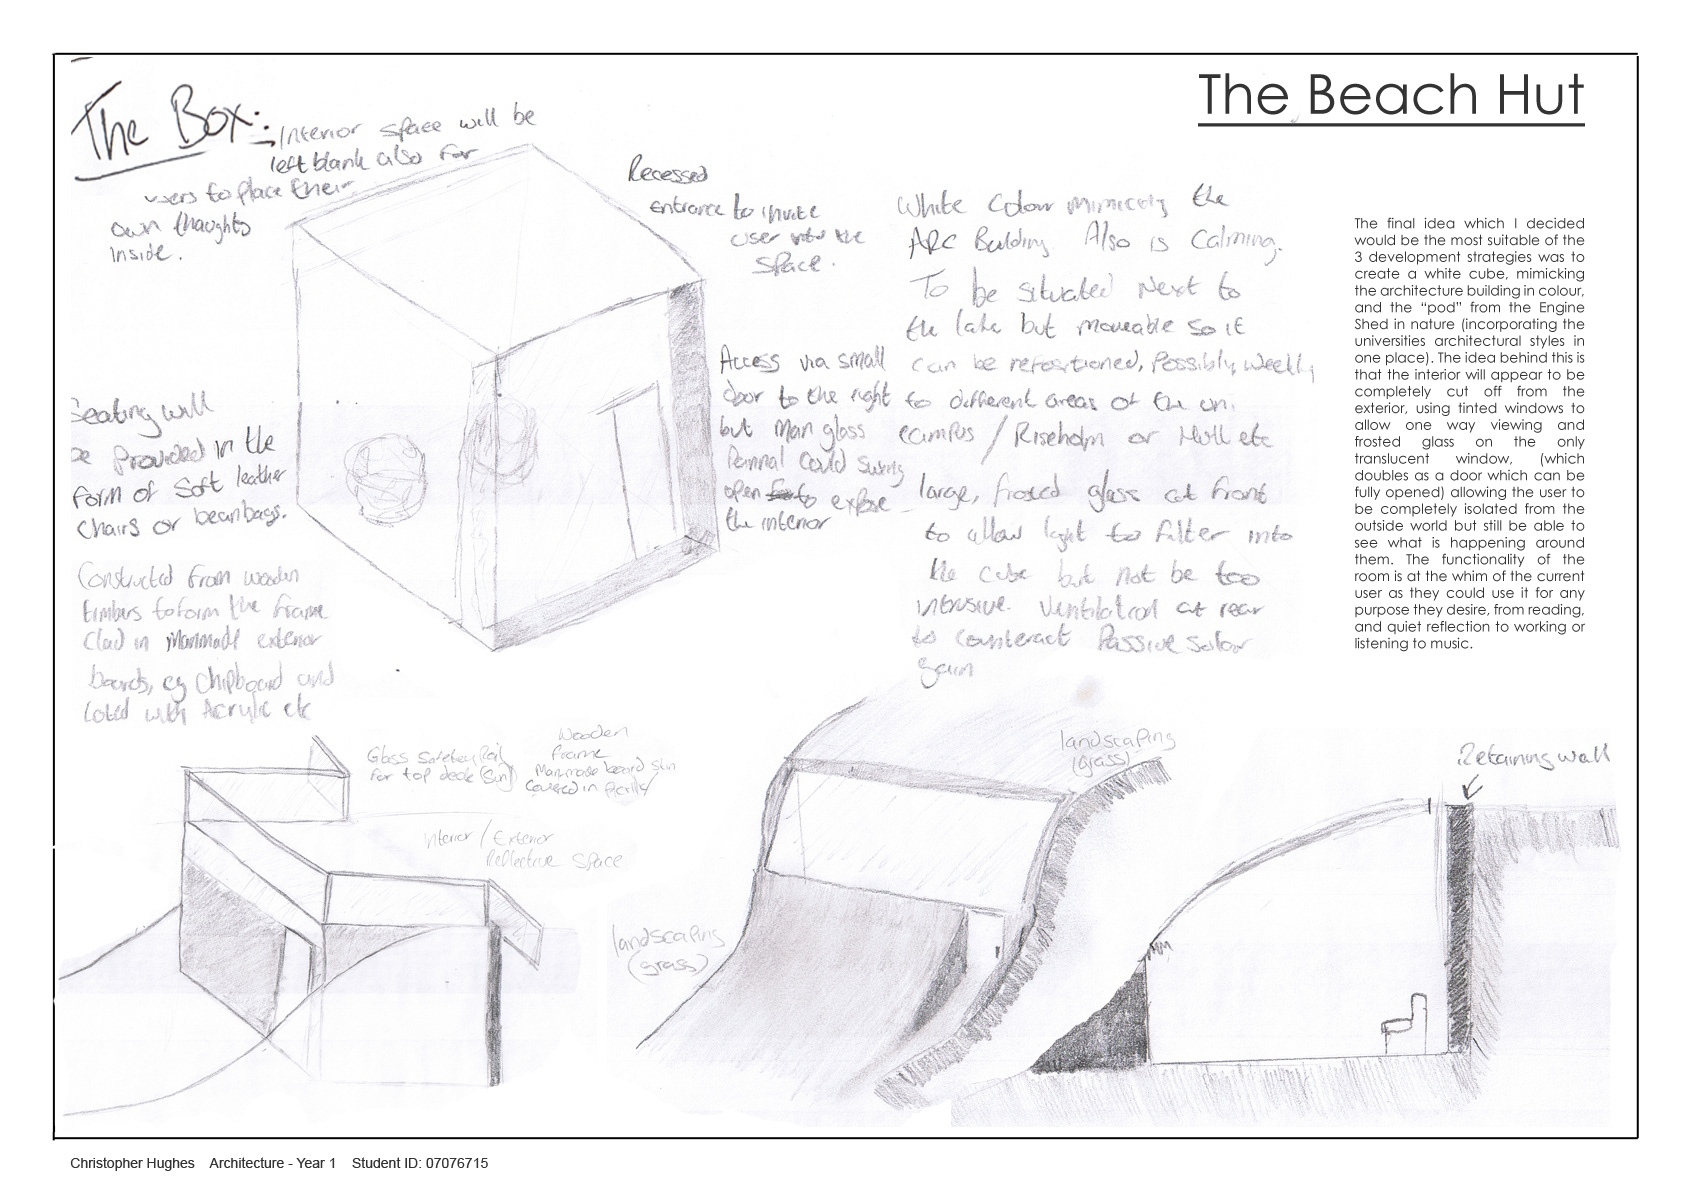 The Box:
Interior space will be
left blank also for
users to place their
own thoughts
inside.
Recessed
entrance to invite
user into the
space.
The Beach Hut
White Colour mimicing the
ARC Building. Also is Calming.
To be situated Next to
the lake but moveable so it
can be repositioned, Possibly Weekly
to different areas of the uni
campus / Riseholm or Hull etc
large, frosted glass at front
to allow light to filter into
the cube but not be too
intrusive. Ventilation at rear
to counteract Passive solar
gain
Access via small
door to the right
but Main glass
Pannal Could swing
open to expose
the interior
Seating will
be Provided in the
form of Soft leather
Chairs or beanbags.
Constructed from wooden
timbers to form the frame
Clad in Manmade exterior
boards, eg Chipboard and
Coted with Acrylic etc
The final idea which I decided
would be the most suitable of the
3 development strategies was to
create a white cube, mimicking
the architecture building in colour,
and the “pod” from the Engine
Shed in nature (incorporating the
universities architectural styles in
one place). The idea behind this is
that the interior will appear to be
completely cut off from the
exterior, using tinted windows to
allow one way viewing and
frosted glass on the only
translucent window, (which
doubles as a door which can be
fully opened) allowing the user to
be completely isolated from the
outside world but still be able to
see what is happening around
them. The functionality of the
room is at the whim of the current
user as they could use it for any
purpose they desire, from reading,
and quiet reflection to working or
listening to music.
Glass Safetey Rail
for top deck (Sun)
Wooden
frame
Manmade board skin
Covered in Acrilly
Interior / Exterior
Reflective Space
landscaping
(grass)
landscaping
(grass)
Retaining wall
Christopher Hughes Architecture - Year 1 Student ID: 07076715